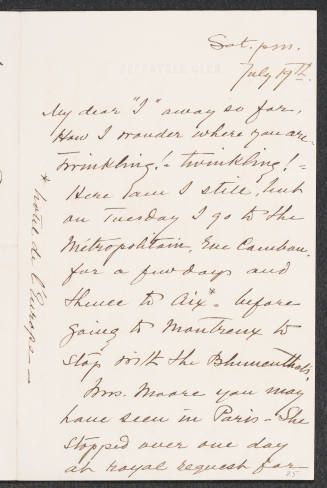 Sat. p.m.
July 19th.
My dear "I" away so far,
How I wonder where you are -
Twinkling! - twinkling! -
Here am I still, but
on Tuesday I go to the
Métropolitain, Rue Cambon,
for a few days and
thence to Aix* - before
going to Montreux to
stop with the Blumenthals.
Mrs. Moore you may
have seen in Paris - She
stopped over one day
at royal request for
* Hotel de l'Europe -